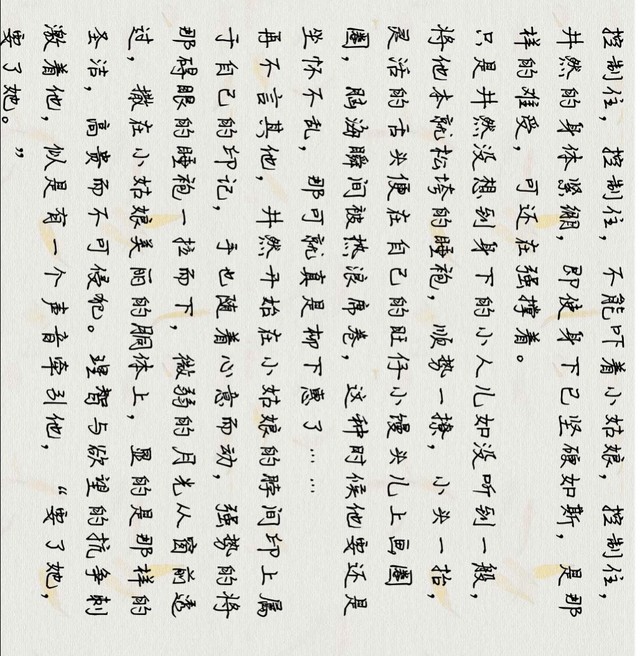 控制住，控制住，不能吓着小姑娘，控制住，
井然的身体紧绷，即使身下已坚硬如斯，是那
样的难受，可还在强撑着。
只是井然没想到身下的小人儿如没听到一般，
将他本就松垮的睡袍，顺势一撩，小头一抬，
灵活的舌头便在自己的旺仔小馒头儿上画圈
圈，脑海瞬间被热浪席卷，这种时候他要还是
坐怀不乱，那可就真是柳下惠了……
再不言其他，井然开始在小姑娘的脖间印上属
于自己的印记，手也随着心意而动，强势的将
那碍眼的睡袍一拉而下，微弱的月光从窗前透
过，撒在小姑娘美丽的胴体上，显的是那样的
圣洁，高贵而不可侵犯。理智与欲望的抗争刺
激着他，似是有一个声音牵引他，“要了她，
要了她。”